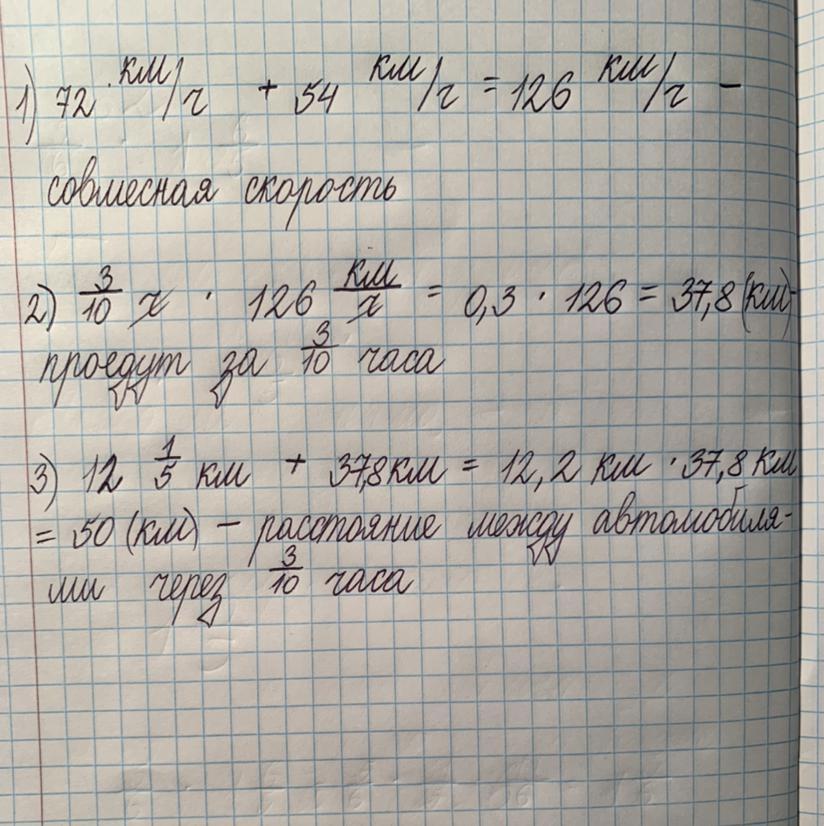 1) 72 км/ч + 54 км/ч = 126 км/ч -
совмесная скорость
2) 3/10 ч · 126 км/ч = 0,3 · 126 = 37,8 (км) -
проедут за 3/10 часа
3) 12 1/5 км + 37,8 км = 12,2 км · 37,8 км
= 50 (км) - расстояние между автомобиля-
ми через 3/10 часа